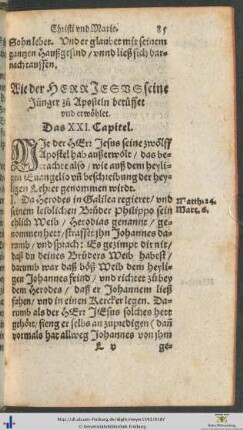 Christi vnd Marie. 85
Sohn lebet. Vnd er glaubet mit seinem
gantzen Haußgesind / vnnd ließ sich dar-
nach tauffen.
Wie der HERR JESVS seine
Jünger zů Aposteln berůffet
vnd erwöhlet.
Das XXI. Capitel.
WJe der HErr Jesus seine zwölff
Apostel hab außerwölt / das be-
trachte also / wie auß dem heyli-
gen Euangelio vñ beschreibung der hey-
ligen Lehrer genommen wirdt.
1. Da Herodes in Galilea regieret / vnd
seinem leiblichen Brůder Philippo sein
ehlich Weib / Herodias genañt / ge-
nommen hett / straffet jhn Johannes da-
rumb / vnd sprach: Es gezimpt dir nit /
daß du deines Brůders Weib habest /
darumb war daß böß Weib dem heyli-
gen Johannes feind / vnd richtet zů bey
dem Herodes / daß er Johannem ließ
fahen / vnd in einen Kercker legen. Da-
rumb als der HErr JEsus solches hett
gehört / fieng er selbs an zů predigen / dañ
vormals hat allweg Johannes von jhm
Matth. 14.
Marc. 6.
L v ge-
http://dl.ub.uni-freiburg.de/diglit/meyer1591/0187
© Universitätsbibliothek Freiburg